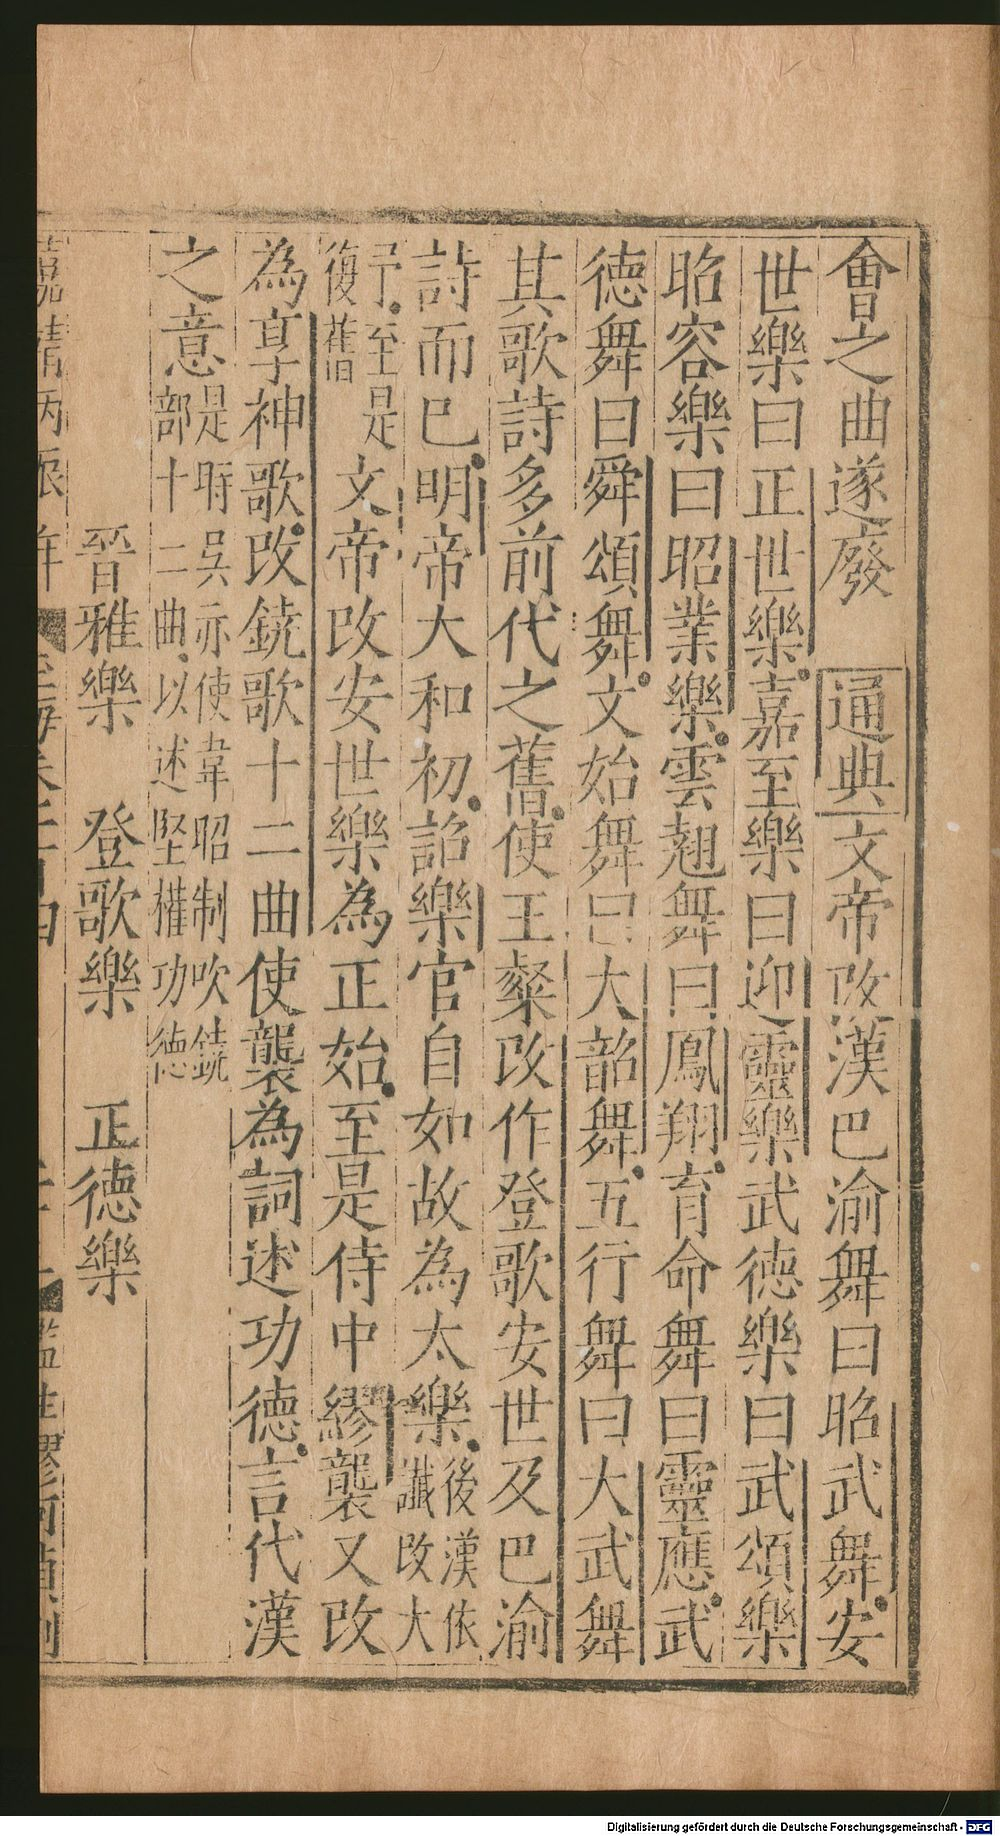 會之曲遂廢　通典文帝改漢巴渝舞曰昭武舞安
世樂曰正世樂嘉至樂曰迎靈樂武德樂曰武頌樂
昭容樂曰昭業樂雲翹舞曰鳳翔育命舞曰靈應武
德舞曰舜頌舞文始舞曰大韶舞五行舞曰大武舞
其歌詩多前代之舊使王粲改作登歌安世及巴渝
詩而已明帝大和初詔樂官自如故為太樂後漢依
讖改大
予至是
復舊
文帝改安世樂為正始至是侍中繆襲又改
為享神歌改鐃歌十二曲使襲為詞述功德言代漢
之意是時吳亦使韋昭制吹鐃
部十二曲以述堅權功德
晉雅樂　登歌樂　正德樂
嘉靖丙辰年
監生繆
Digitalisierung gefördert durch die Deutsche Forschungsgemeinschaft - DFG